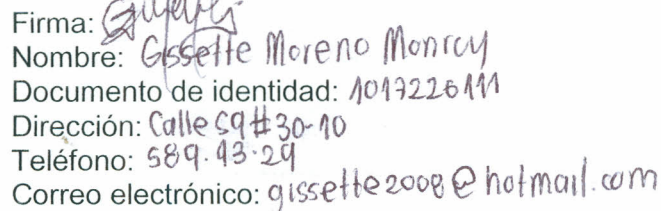 Firma:
Nombre: Gissette Moreno Monroy
Documento de identidad: 1017226111
Dirección: Calle 59 #30-10
Teléfono: 589.93.29
Correo electrónico: gissette2008@hotmail.com